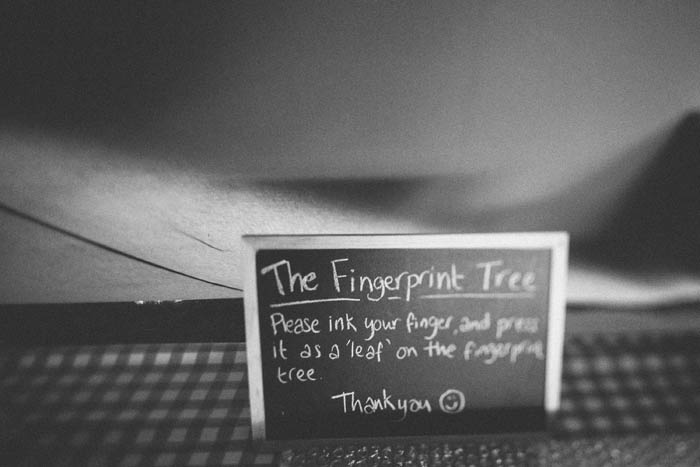 The Fingerprint Tree
Please ink your finger, and press
it as a 'leaf' on the fingerprint
tree.
Thankyou ☺